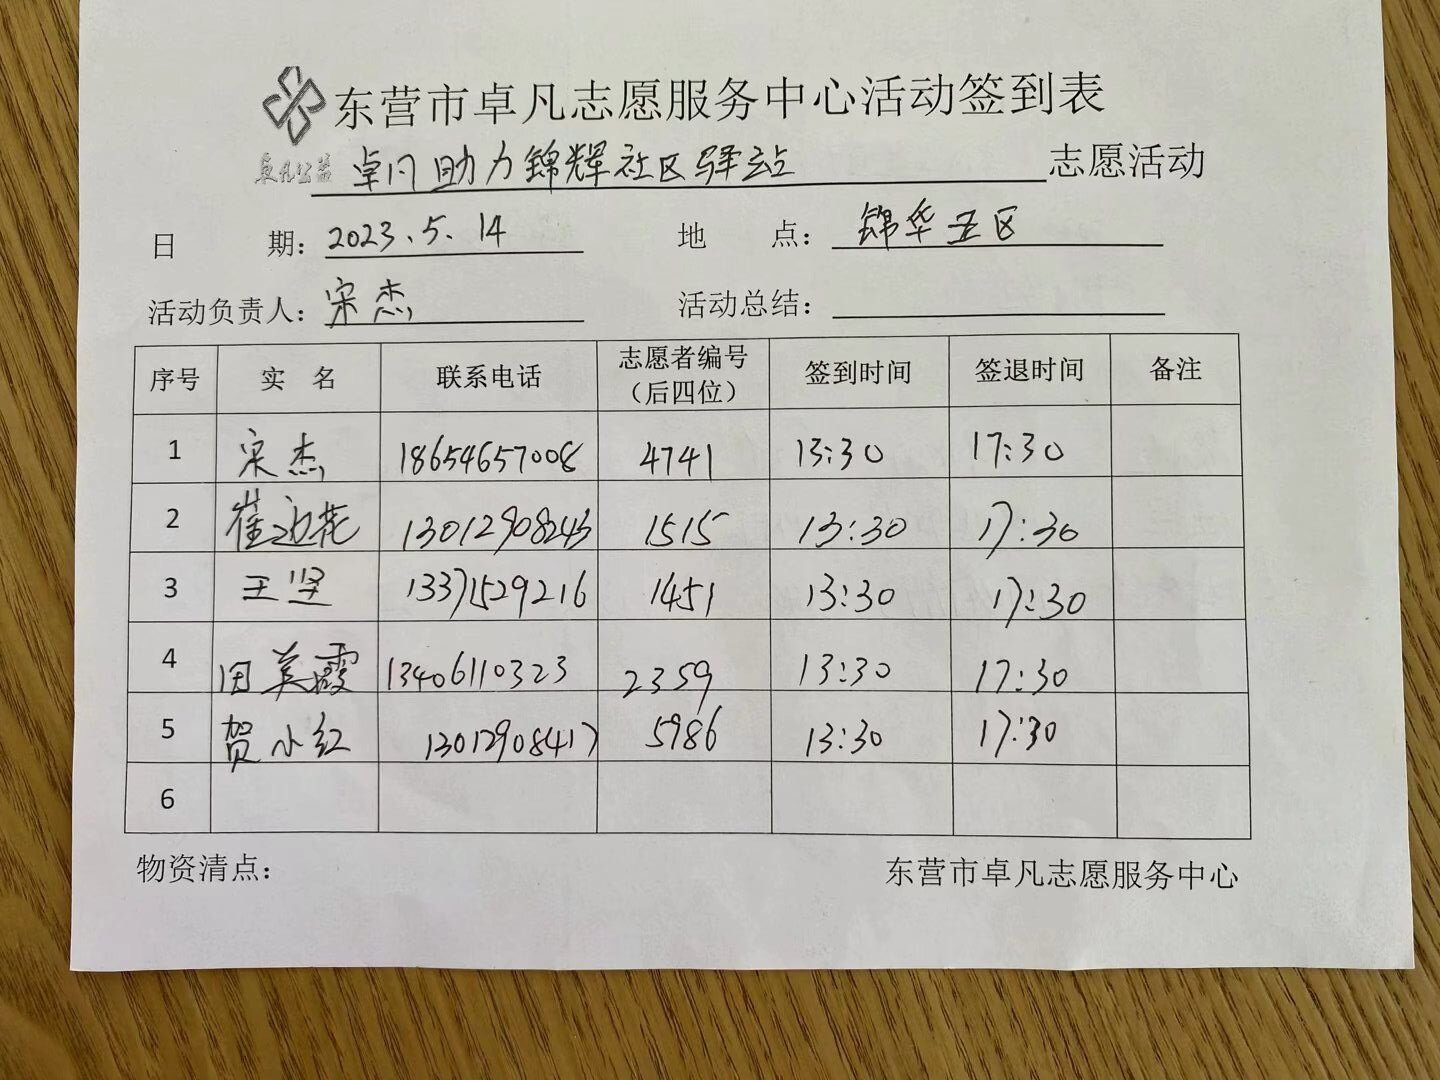 东营市卓凡志愿服务中心活动签到表
卓凡公益 卓凡助力锦辉社区驿站 志愿活动
日 期：2023.5.14 地 点：锦华五区
活动负责人：宋杰 活动总结：
序号 实 名 联系电话 志愿者编号（后四位） 签到时间 签退时间 备注
1 宋杰 18654657008 4741 13:30 17:30
2 崔迎花 13012908243 1515 13:30 17:30
3 王坚 13371529216 1451 13:30 17:30
4 田美霞 13406110323 2359 13:30 17:30
5 贺小红 13012908417 5986 13:30 17:30
6
物资清点： 东营市卓凡志愿服务中心